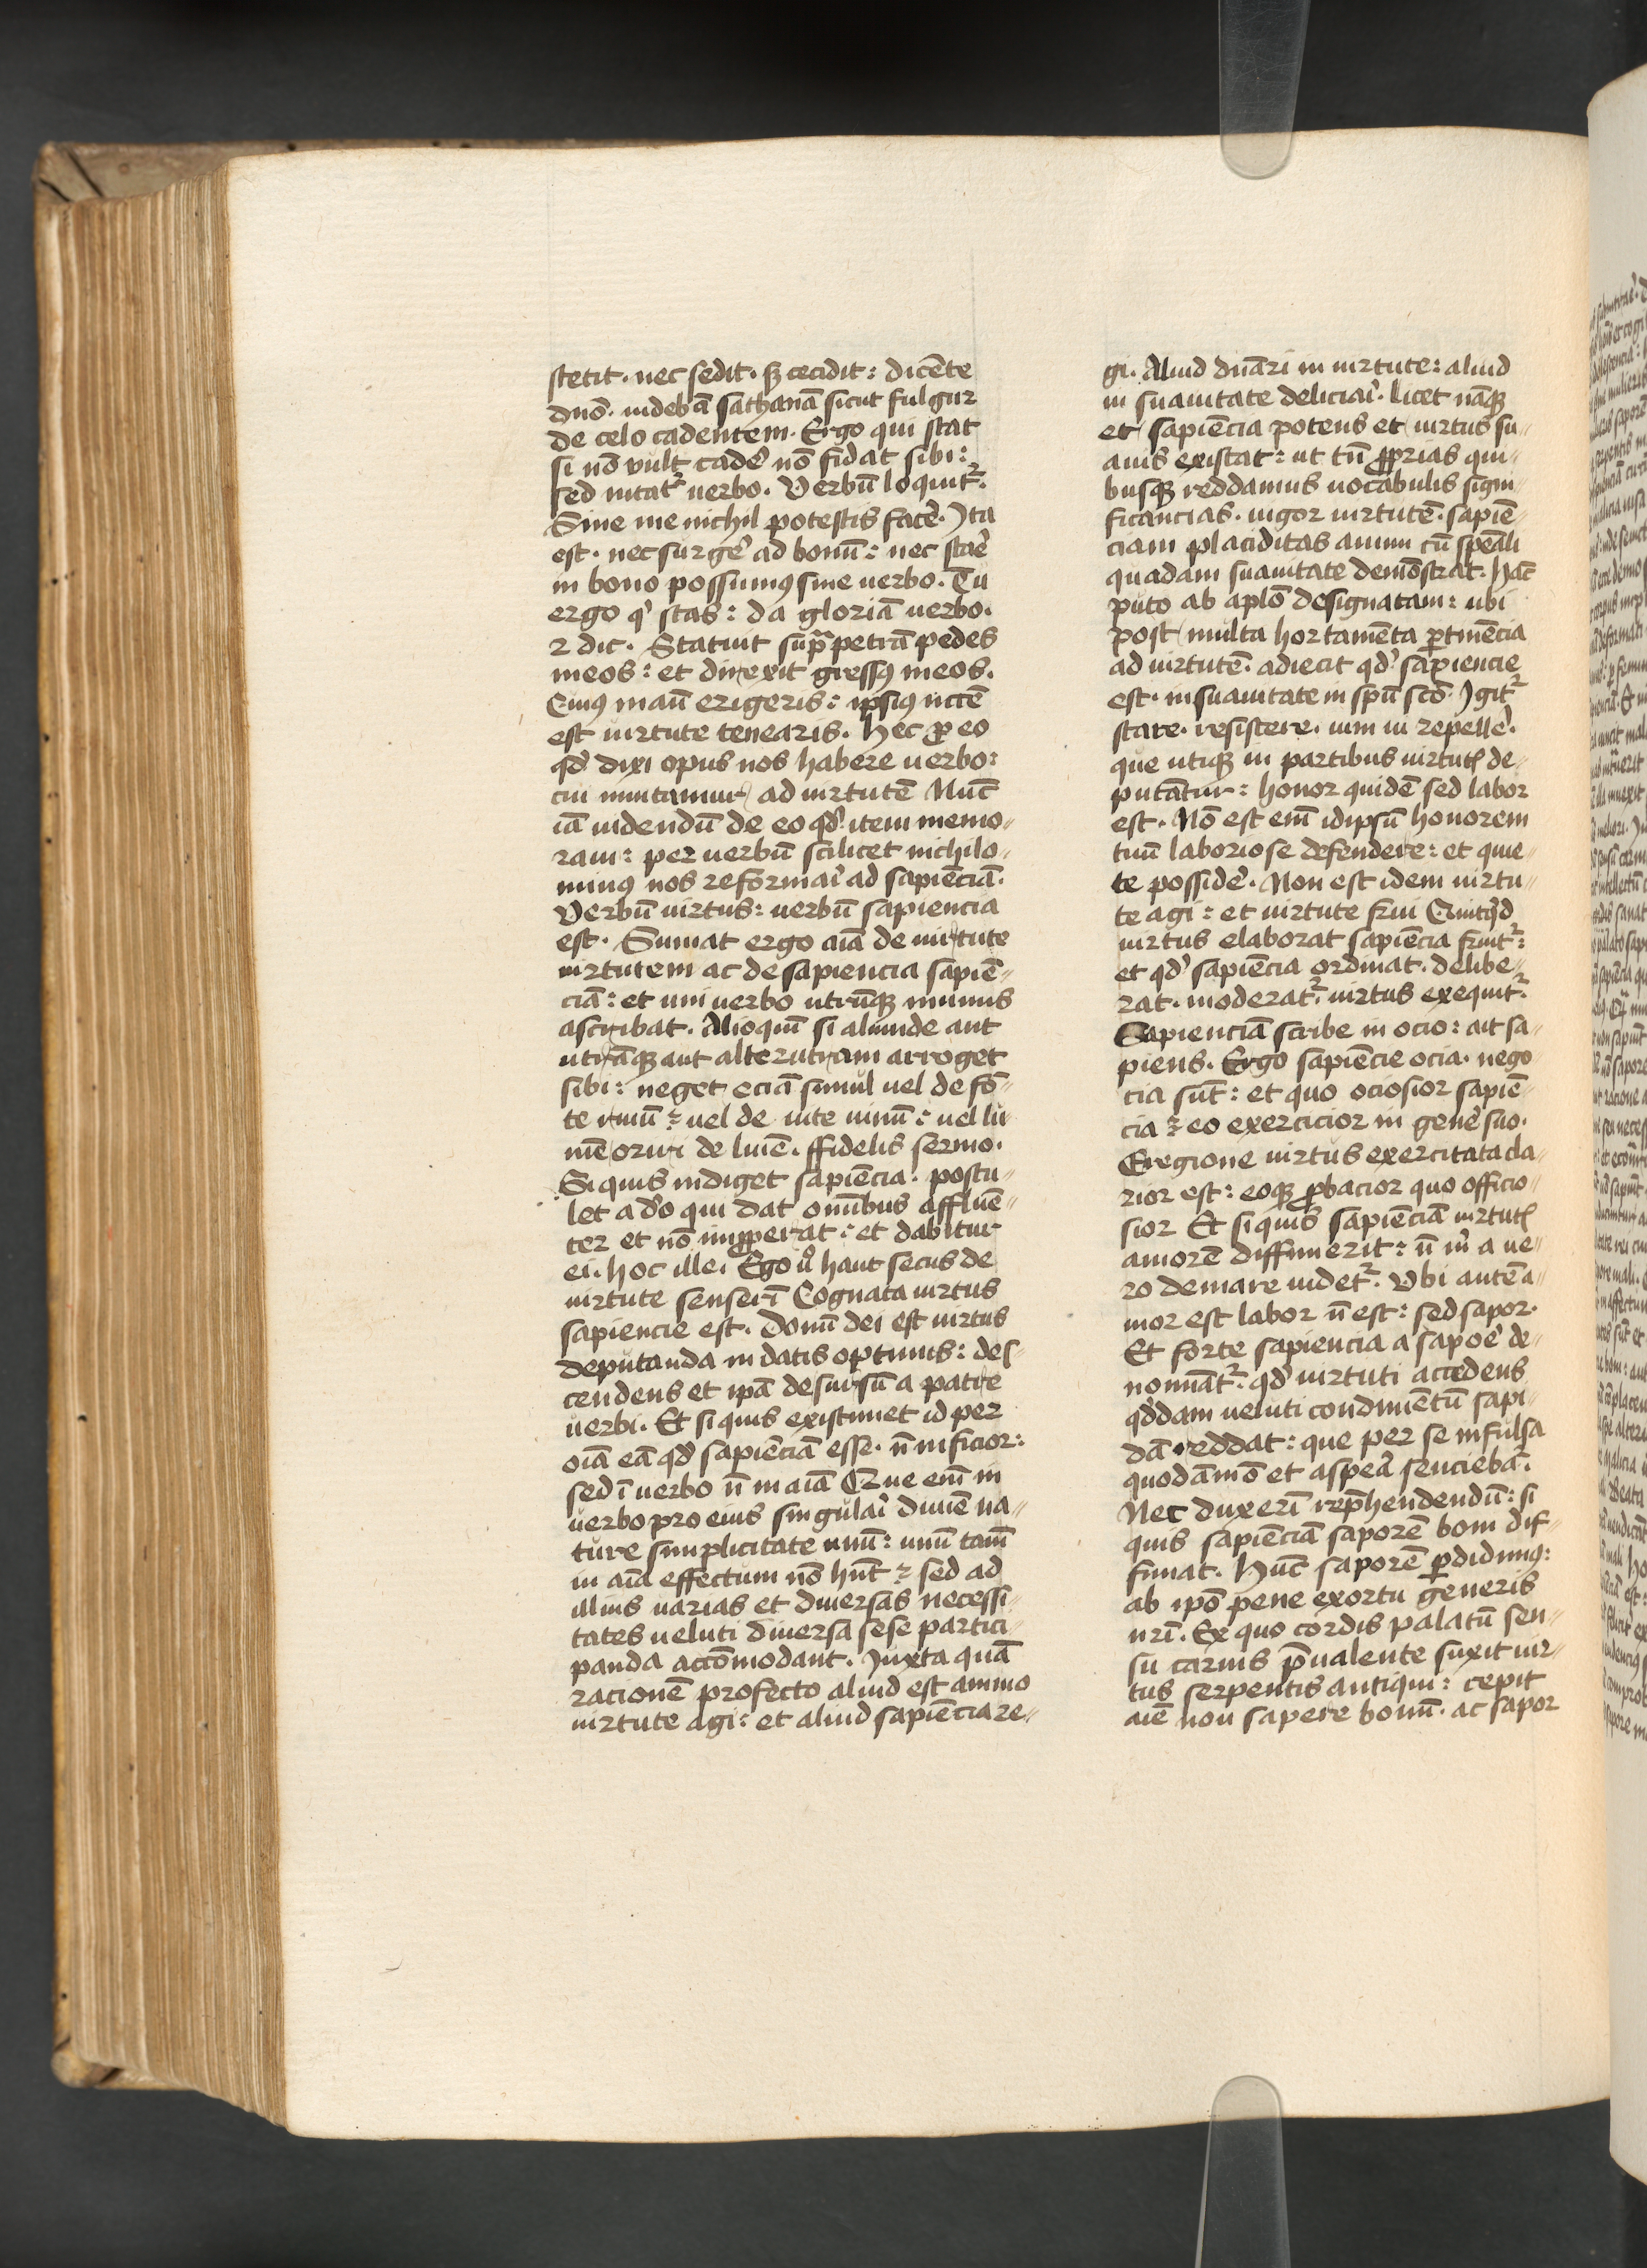 stetit. nec sedit. sꝫ cecidit: dicēte
dnō. uidebā sathanā sicut fulgur
de celo cadentem. Ergo qui stat
si nō vult cadeˀ nō fidat sibi:
sed nitatᷣ uerbo. Verbū loquitᷣ.
Sine me nichil potestis faceˀ. Ita
est. nec surgeˀ ad bonū: nec staˀe
in bono possumꝰ sine uerbo. Tu
ergo qͥ stas: da gloriā uerbo.
⁊ dic. Statuit supᷓ petrā pedes
meos: et direxit gressꝰ meos.
Cuiꝰ manū erigeris: ipsiꝰ nccē
est uirtute tenearis. Hec ꝓ eo
qd̓ dixi opus nos habere uerbo:
cui innitamur ad uirtutē Nūc
iā uidendū de eo qd̓ item memo-
raui: per uerbū scilicet nichilo-
minꝰ nos reformaˀi ad sapiēciā.
Verbū uirtus: uerbū sapiencia
est. Sumat ergo aīa de uirtute
uirtutem ac de sapiencia sapiē-
ciā: et uni uerbo utrūqꝫ munus
ascribat. Alioquī si aliunde aut
utrāqꝫ aut alterutram arroget
sibi: neget eciā simul uel de fō-
te riuū: uel de uite uinū: uel lu-
mē oriri de luīe. ffidelis sermo.
Si quis indiget sapiēcia. postu-
let a do̓ qui dat omībus affluē-
ter et nō imꝓperat: et dabitur
ei. hoc ille. Ego uͦ haut secus de
uirtute senserī Cognata uirtus
sapiencie est. Donū dei est uirtus
deputanda in datis optimis: des-
cendens et ipā desursū a patre
uerbi. Et si quis existimet id per
oīa eā qd̓ sapiēciā esse. n̄ inficior:
sed ī uerbo n̄ in aīa Que enī in
uerbo pro eius singulaˀi diuīe na-
ture simplicitate unū: unū tamē
in aīa effectum nō hn̄t: sed ad
illius uarias et diuersas necessi-
tates ueluti diuersa sese partici-
panda accōmodant. Iuxta quā
racionē profecto aliud est animo
uirtute agi: et aliud sapiēcia re-
gi. Aliud dn̄ari in uirtute: aliud
in suauitate deliciaˀi. licet nāqꝫ
et sapiēcia potens et uirtus su-
auis existat: ut tn̄ ꝓprias qui-
busqꝫ reddamus uocabulis signi-
ficancias. uigor uirtutē. sapiē-
ciam placiditas animi cū spēali
quadam suauitate demōstrat. Hāc
puto ab aplō designatam: ubi
post multa hortamēta ꝑtinēcia
ad uirtutē. adiecit qd̓ sapiencie
est. in suauitate in spū scō Igitᷣ
stare. resistere. uim ui repelleˀ.
que utiqꝫ in partibus uirtutꝭ de-
putātur: honor quidē sed labor
est. Nō est enī idipsū honorem
tuū laboriose defendere: et quie-
te possideˀ. Non est idem uirtu-
te agi: et uirtute frui Quitqͥd
uirtus elaborat sapiēcia fruitᷣ:
et qd̓ sapiēcia ordinat. delibe-
rat. moderatᷣ. uirtus exequitᷣ.
Sapienciā scribe in ocio: ait sa-
piens. Ergo sapiēcie ocia. nego
cia sūt: et quo ociosior sapiē-
cia: eo exercicior in geneˀ suo.
Eregione uirtus exercitata cla-
rior est: eoqꝫ ꝓbacior quo officio-
sior Et si quis sapiēciā uirtutꝭ
amorē diffinierit: n̄ mͥ a ue-
ro deuiare uidetᷣ. Vbi autē a-
mor est labor n̄ est: sed sapor.
Et forte sapiencia a sapoˀe de-
nominātᷣ. qd̓ uirtuti accedens
qd̓dam ueluti condimētū sapi-
dā reddat: que per se insulsa
quodāmō et aspera senciebāᷣ.
Nec duxerī rep̄hendendū: si
quis sapiēciā saporē boni dif-
finiat. Hūc saporē ꝑdidimꝰ:
ab ipō pene exortu generis
nrī. Ex quo cordis palatū sen-
su carnis p̄ualente suxit uir-
tus serpentis antiqui: cepit
aīe non sapere bonū. ac sapor